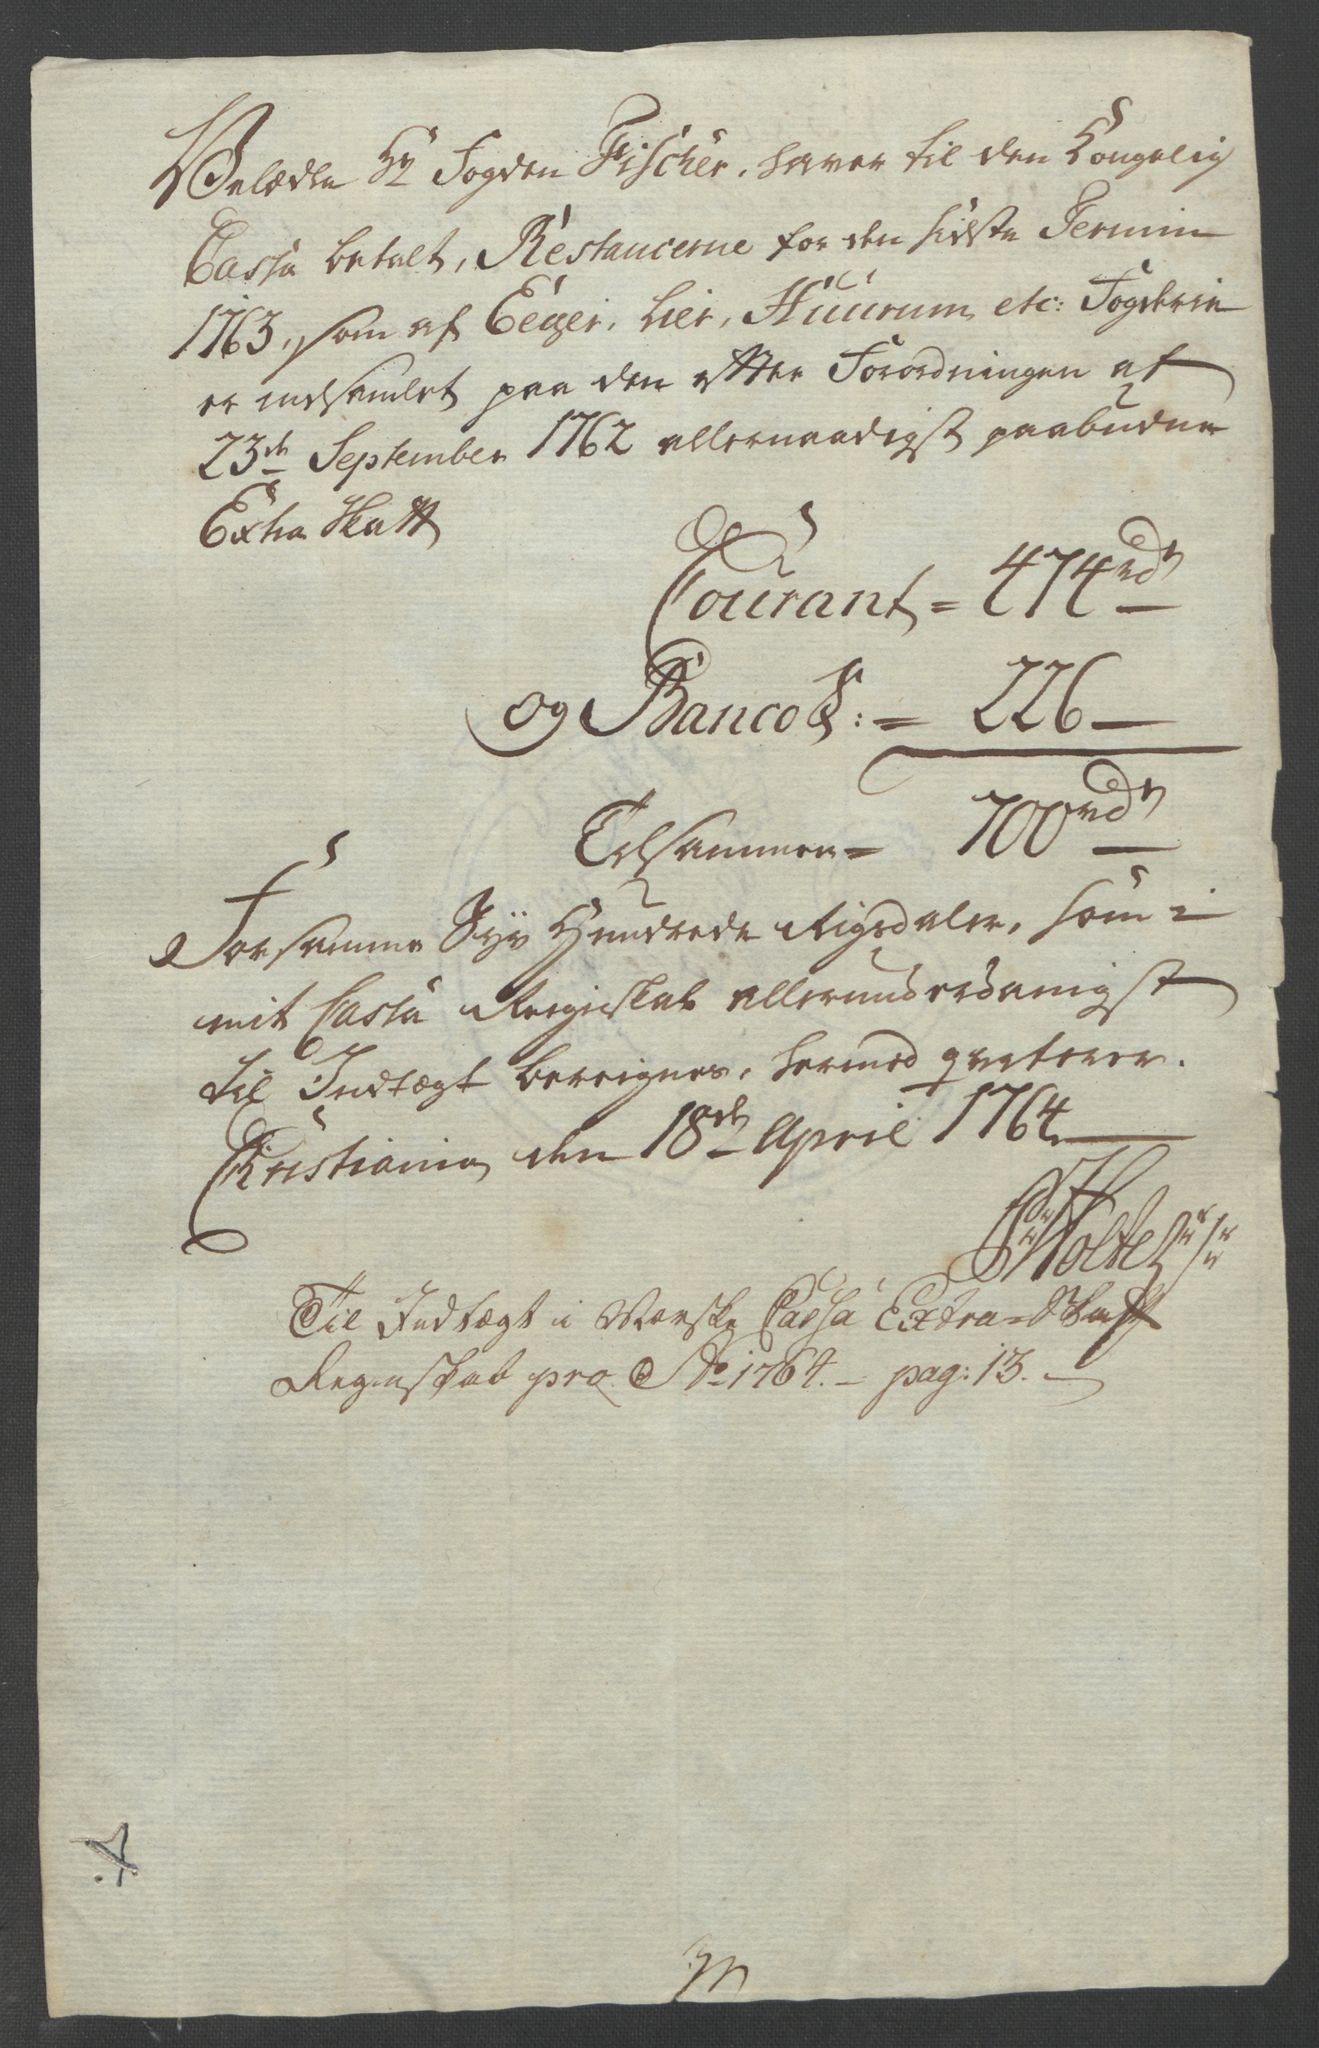 Velædle Hr Fogden Fischer, haver til den Kongelig
Cassa betalt, Restancerne for den sidste Termin
1763, som af Eeger, Lier, Huurum, etc: Fogderie
er indsamlet paa den efter Forordningen af
23de September 1762 allernaadigst paabudne
Extra Skatt
Courant = 474 rdr
og Banco S: = 226
Tilsammen = 700 rdr
Forsamme Syv Hundrede Rigsdaler, som i
mit Cassa Regnskab allerunderdanigst
til Indtægt beregnes, hermed qviterer.
Christiania den 18de April 1764
Holte
Til Indtægt i Norske Cassa Extra-Skatt
Regenskab pro Ao 1764. - pag: 13.